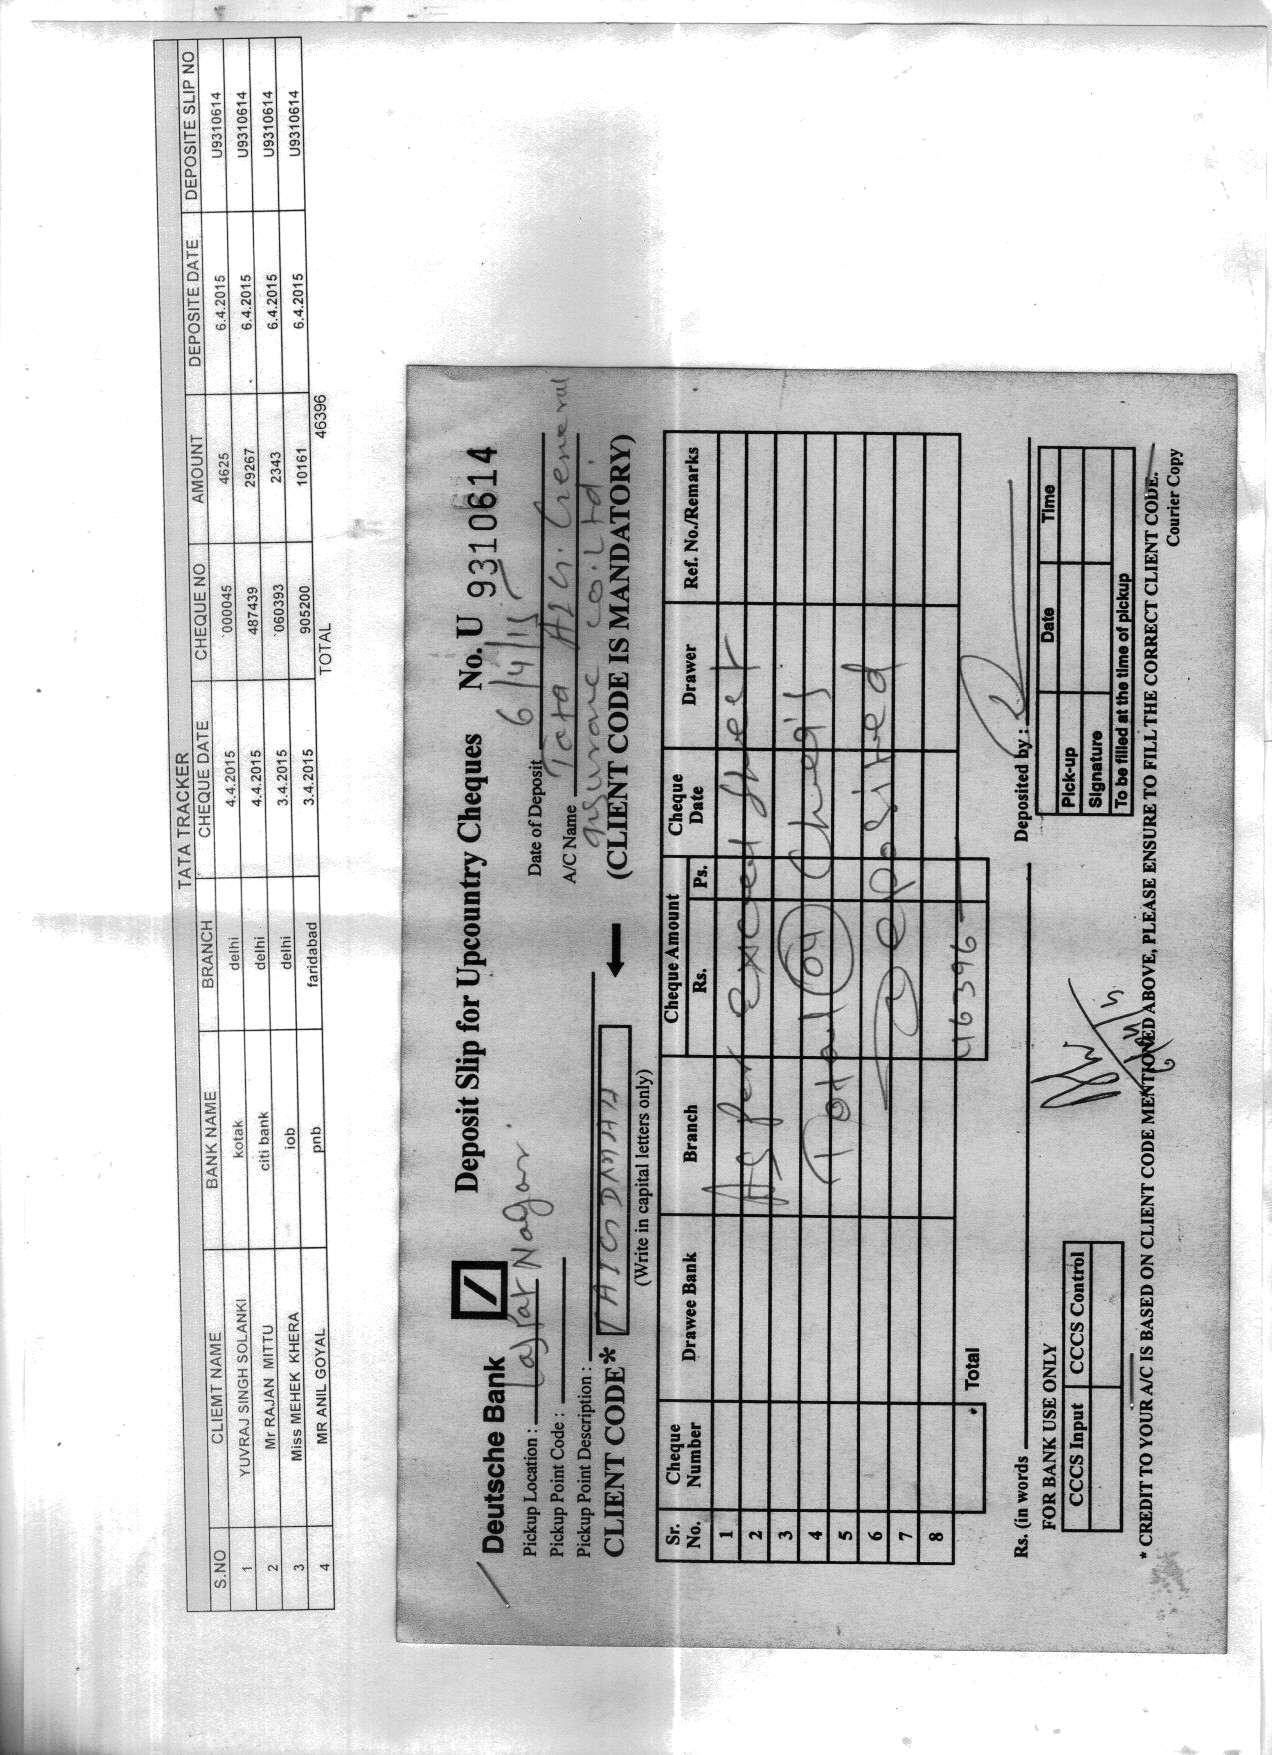 TATA TRACKER
S.NO CLIEMT NAME BANK NAME BRANCH CHEQUE DATE CHEQUE NO AMOUNT DEPOSITE DATE DEPOSITE SLIP NO
1 YUVRAJ SINGH SOLANKI kotak delhi 4.4.2015 '000045 4625 6.4.2015 U9310614
2 Mr RAJAN MITTU citi bank delhi 4.4.2015 487439 29267 6.4.2015 U9310614
3 Miss MEHEK KHERA iob delhi 3.4.2015 '060393 2343 6.4.2015 U9310614
4 MR ANIL GOYAL pnb faridabad 3.4.2015 905200 10161 6.4.2015 U9310614
TOTAL 46396
Deutsche Bank Deposit Slip for Upcountry Cheques No. U 9310614
Pickup Location : Lajpat Nagar Date of Deposit 6/4/15
Pickup Point Code : A/C Name Tata AIG General
Pickup Point Description : insurance co. Ltd.
CLIENT CODE* AIGDMAH (CLIENT CODE IS MANDATORY)
(Write in capital letters only)
Sr. No. Cheque Number Drawee Bank Branch Cheque Amount Rs. Ps. Cheque Date Drawer Ref. No./Remarks
1 As per Exceed Sheet
2
3
4 Total 04 Cheq's
5
6 Deposited
7
8
* Total 46396
Rs. (in words Deposited by :
FOR BANK USE ONLY
CCCS Input CCCS Control
Date Time
Pick-up
Signature
To be filled at the time of pickup
* CREDIT TO YOUR A/C IS BASED ON CLIENT CODE MENTIONED ABOVE, PLEASE ENSURE TO FILL THE CORRECT CLIENT CODE.
Courier Copy